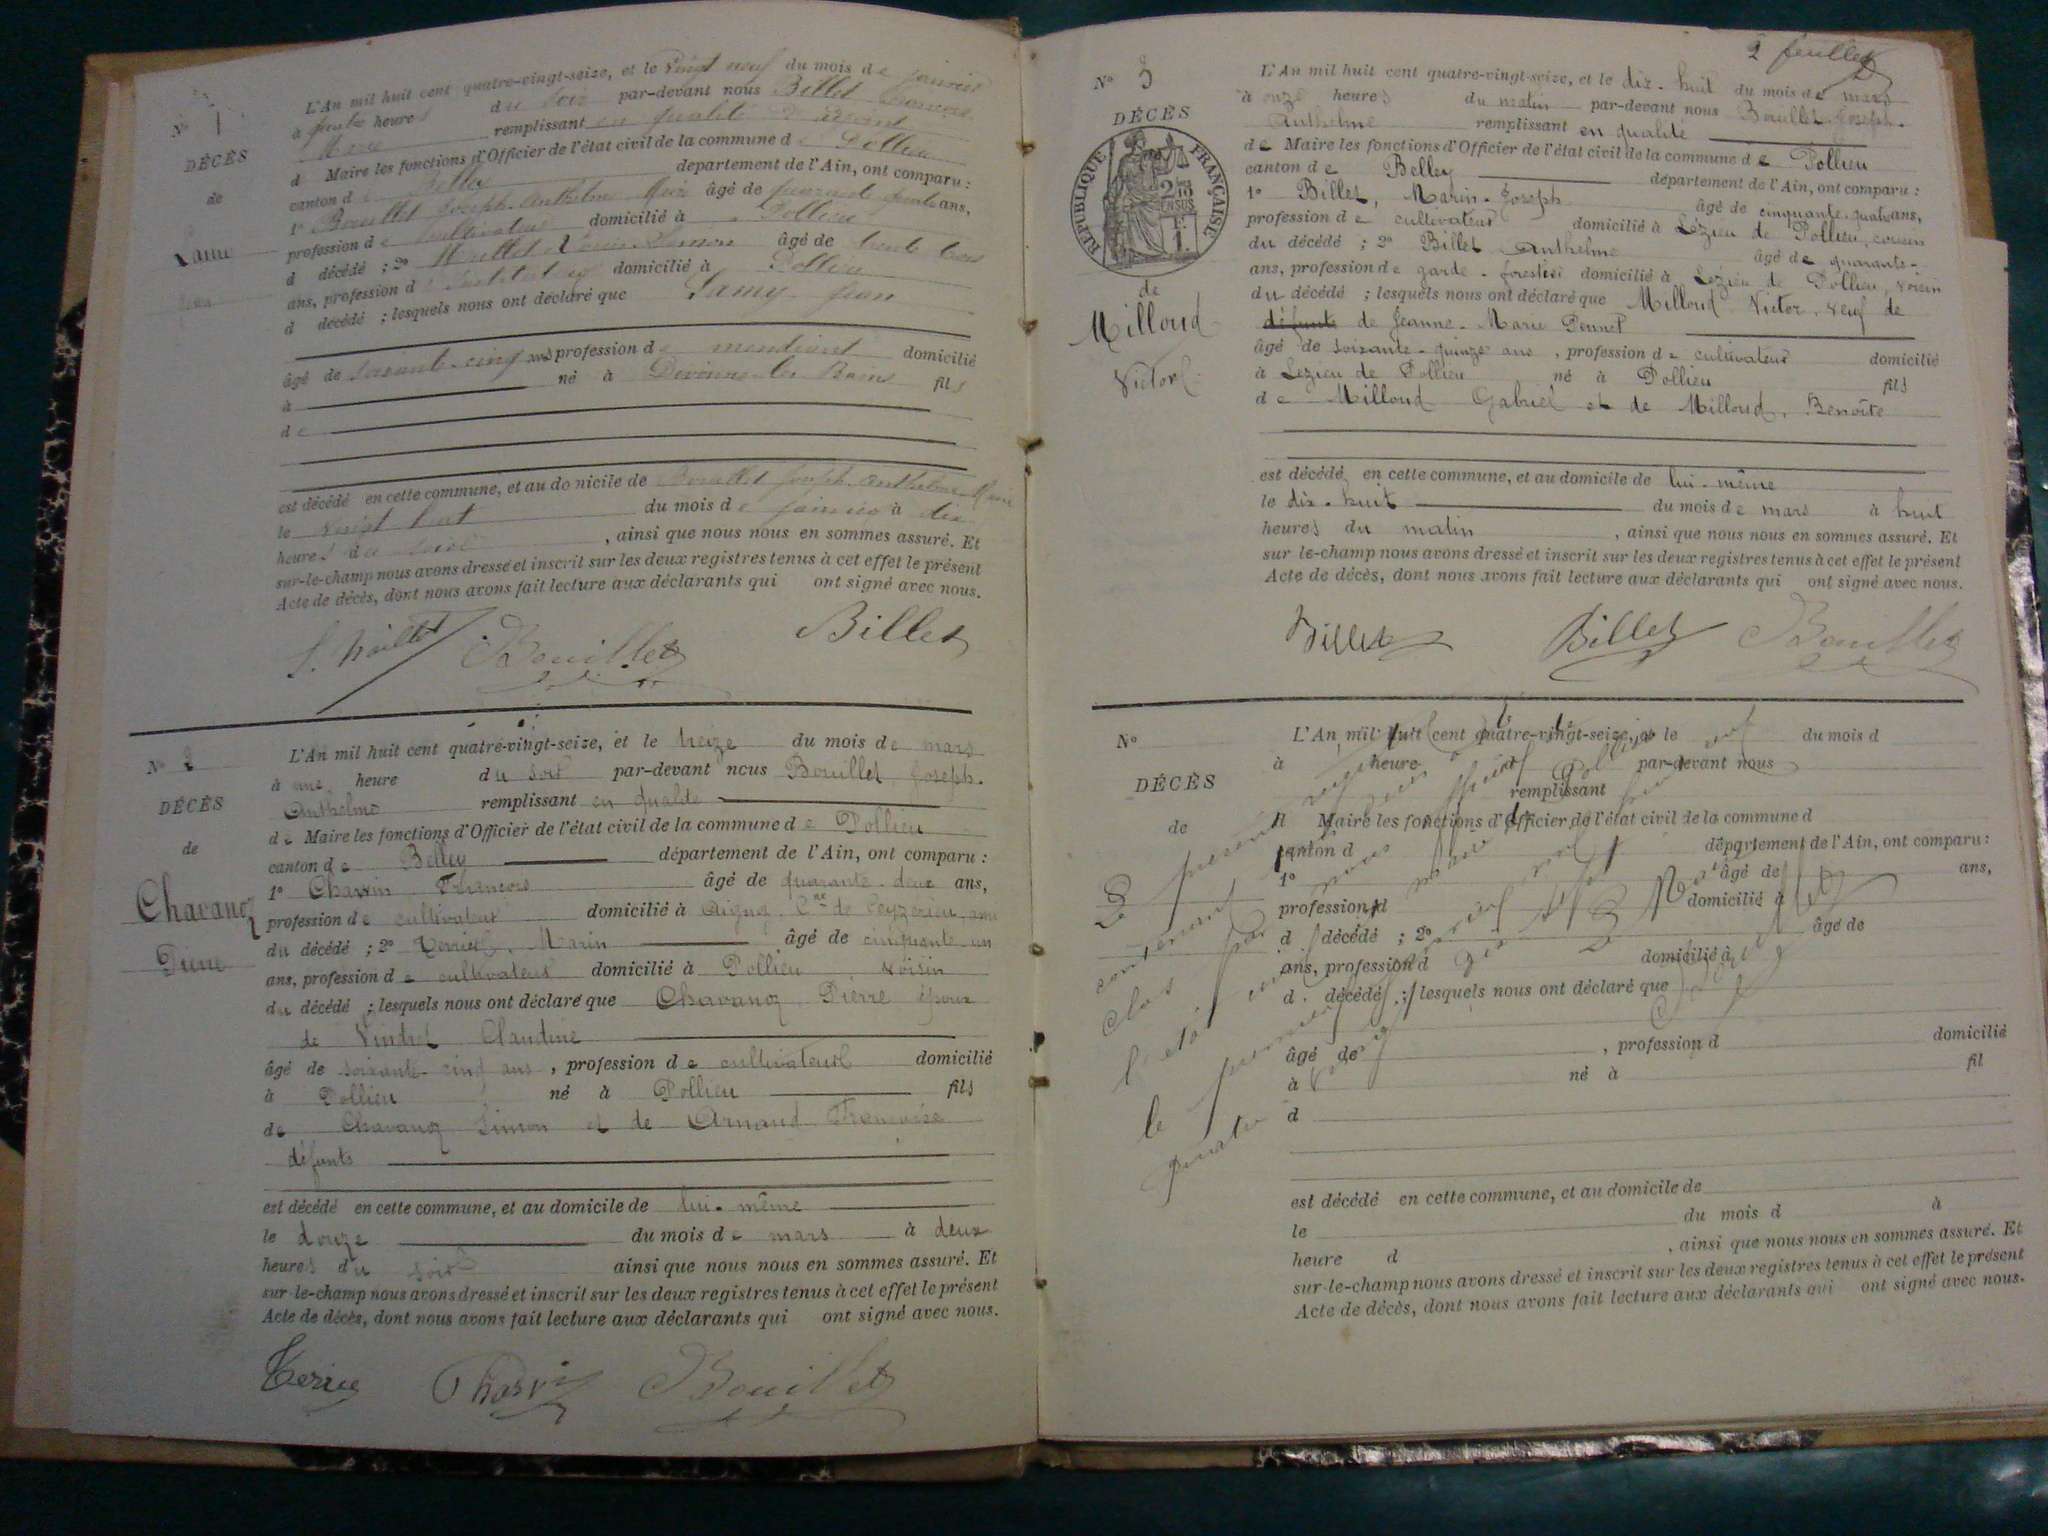 N° 1
DÉCÈS
de
L'An mil huit cent quatre-vingt-seize, et le vingt neuf du mois de janvier
à heures du soir par-devant nous Billet
remplissant en qualité
d Maire les fonctions d'Officier de l'état civil de la commune de Pollieu
canton de Belley département de l'Ain, ont comparu :
1° Bouillet Joseph-Anthelme Maire âgé de quarante ans,
profession de cultivateur domicilié à Pollieu
d décédé ; 2° âgé de trente trois
ans, profession d domicilié à Pollieu
d décédé ; lesquels nous ont déclaré que Lamy Jean
âgé de soixante-cinq ans profession de mendiant domicilié
à né à Divonne-les-Bains fils
de
est décédé en cette commune, et au domicile de Bouillet Joseph-Anthelme Maire
le vingt huit du mois de janvier à dix
heures du soir , ainsi que nous nous en sommes assuré. Et
sur-le-champ nous avons dressé et inscrit sur les deux registres tenus à cet effet le présent
Acte de décès, dont nous avons fait lecture aux déclarants qui ont signé avec nous.
Bouillet Billet
N° 2
DÉCÈS
de
Chavanoz
L'An mil huit cent quatre-vingt-seize, et le treize du mois de mars
à une heure du soir par-devant nous Bouillet, Joseph-
Anthelme remplissant en qualité
de Maire les fonctions d'Officier de l'état civil de la commune de Pollieu
canton de Belley département de l'Ain, ont comparu :
1° Charvin François âgé de quarante-deux ans,
profession de cultivateur domicilié à Aignoz Cne de Ceyzérieu, ami
du décédé ; 2° Marin âgé de cinquante-un
ans, profession de cultivateur domicilié à Pollieu, voisin
du décédé ; lesquels nous ont déclaré que Chavanoz, Pierre époux
de Claudine
âgé de soixante-cinq ans, profession de cultivateur domicilié
à Pollieu né à Pollieu fils
de Chavanoz Simon et de Arnaud Françoise
défunts
est décédé en cette commune, et au domicile de lui-même
le douze du mois de mars à deux
heures du soir ainsi que nous nous en sommes assuré. Et
sur-le-champ nous avons dressé et inscrit sur les deux registres tenus à cet effet le présent
Acte de décès, dont nous avons fait lecture aux déclarants qui ont signé avec nous.
Charvin Bouillet
2 feuillet
N° 3
DÉCÈS
RÉPUBLIQUE FRANÇAISE
de
Milloud
Victor
L'An mil huit cent quatre-vingt-seize, et le dix-huit du mois de mars
à onze heures du matin par-devant nous Bouillet Joseph-
Anthelme remplissant en qualité
de Maire les fonctions d'Officier de l'état civil de la commune de Pollieu
canton de Belley département de l'Ain, ont comparu :
1° Billet, Marin-Joseph âgé de cinquante-quatre ans,
profession de cultivateur domicilié à Lézieu de Pollieu, cousin
du décédé ; 2° Billet Anthelme âgé de quarante-
ans, profession de garde-forestier domicilié à Lézieu de Pollieu, voisin
du décédé ; lesquels nous ont déclaré que Milloud Victor, veuf de
défunte de Jeanne-Marie Pennet
âgé de soixante-quinze ans, profession de cultivateur domicilié
à Lézieu de Pollieu né à Pollieu fils
de Milloud Gabriel et de Milloud, Benoîte
est décédé en cette commune, et au domicile de lui-même
le dix-huit du mois de mars à huit
heures du matin , ainsi que nous nous en sommes assuré. Et
sur-le-champ nous avons dressé et inscrit sur les deux registres tenus à cet effet le présent
Acte de décès, dont nous avons fait lecture aux déclarants qui ont signé avec nous.
Billet Billet Bouillet
N°
DÉCÈS
de
L'An mil huit cent quatre-vingt-seize, et le du mois d
à heure par-devant nous
remplissant
Maire les fonctions d'Officier de l'état civil de la commune d
canton d département de l'Ain, ont comparu :
1° âgé de ans,
profession d domicilié à
d décédé ; 2° âgé de
ans, profession d domicilié à
d décédé ; lesquels nous ont déclaré que
âgé de , profession d domicilié
à né à fil
d
est décédé en cette commune, et au domicile de
le du mois d à
heure d , ainsi que nous nous en sommes assuré. Et
sur-le-champ nous avons dressé et inscrit sur les deux registres tenus à cet effet le présent
Acte de décès, dont nous avons fait lecture aux déclarants qui ont signé avec nous.